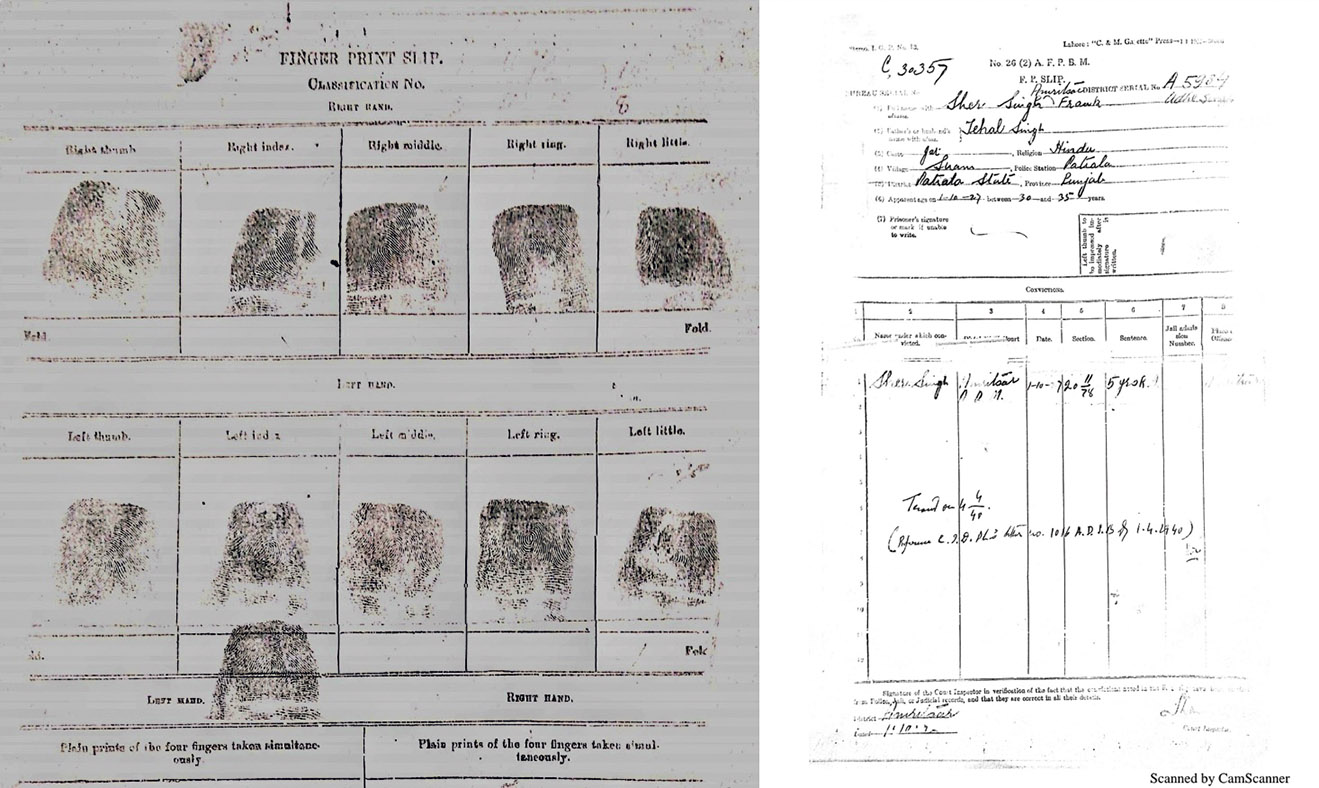 FINGER PRINT SLIP.
CLASSIFICATION No.
RIGHT HAND.
Right thumb
Right index.
Right middle.
Right ring.
Right little.
Fold.
Fold.
LEFT HAND.
Left thumb.
Left index
Left middle.
Left ring.
Left little.
LEFT HAND.
RIGHT HAND.
Plain prints of the four fingers taken simultane-
ously.
Plain prints of the four fingers taken simul-
taneously.
Lahore: "C. & M. Gazette" Press
C, 30357
No. 26 (2) A. F. P. B. M.
F. P. SLIP.
Amritsar DISTRICT SERIAL No A
Sher Singh Frank
Tehal Singh
Religion Hindu
(4) Village Police Station Patiala
District Patiala State, Province Punjab
(6) Apparent age on 1-10-27 between 30 and 35 years.
(7) Prisoner's signature
or mark if unable
to write.
Left thumb to
be impressed im-
mediately after
signature is
written.
CONVICTIONS.
1 2 3 4 5 6 7 8
Name under which con-
victed.
Court
Date.
Section.
Sentence.
Jail admis
sion
Number.
Sher Singh Amritsar 1-10- 20 11/78 5 yrs
4/40
no. 1016 1-4-1940)
Signature of the Court Inspector in verification of the fact that the convictions noted in
Police, Jail, or Judicial records, and that they are correct in all their details.
District Amritsar
Court Inspector
Scanned by CamScanner